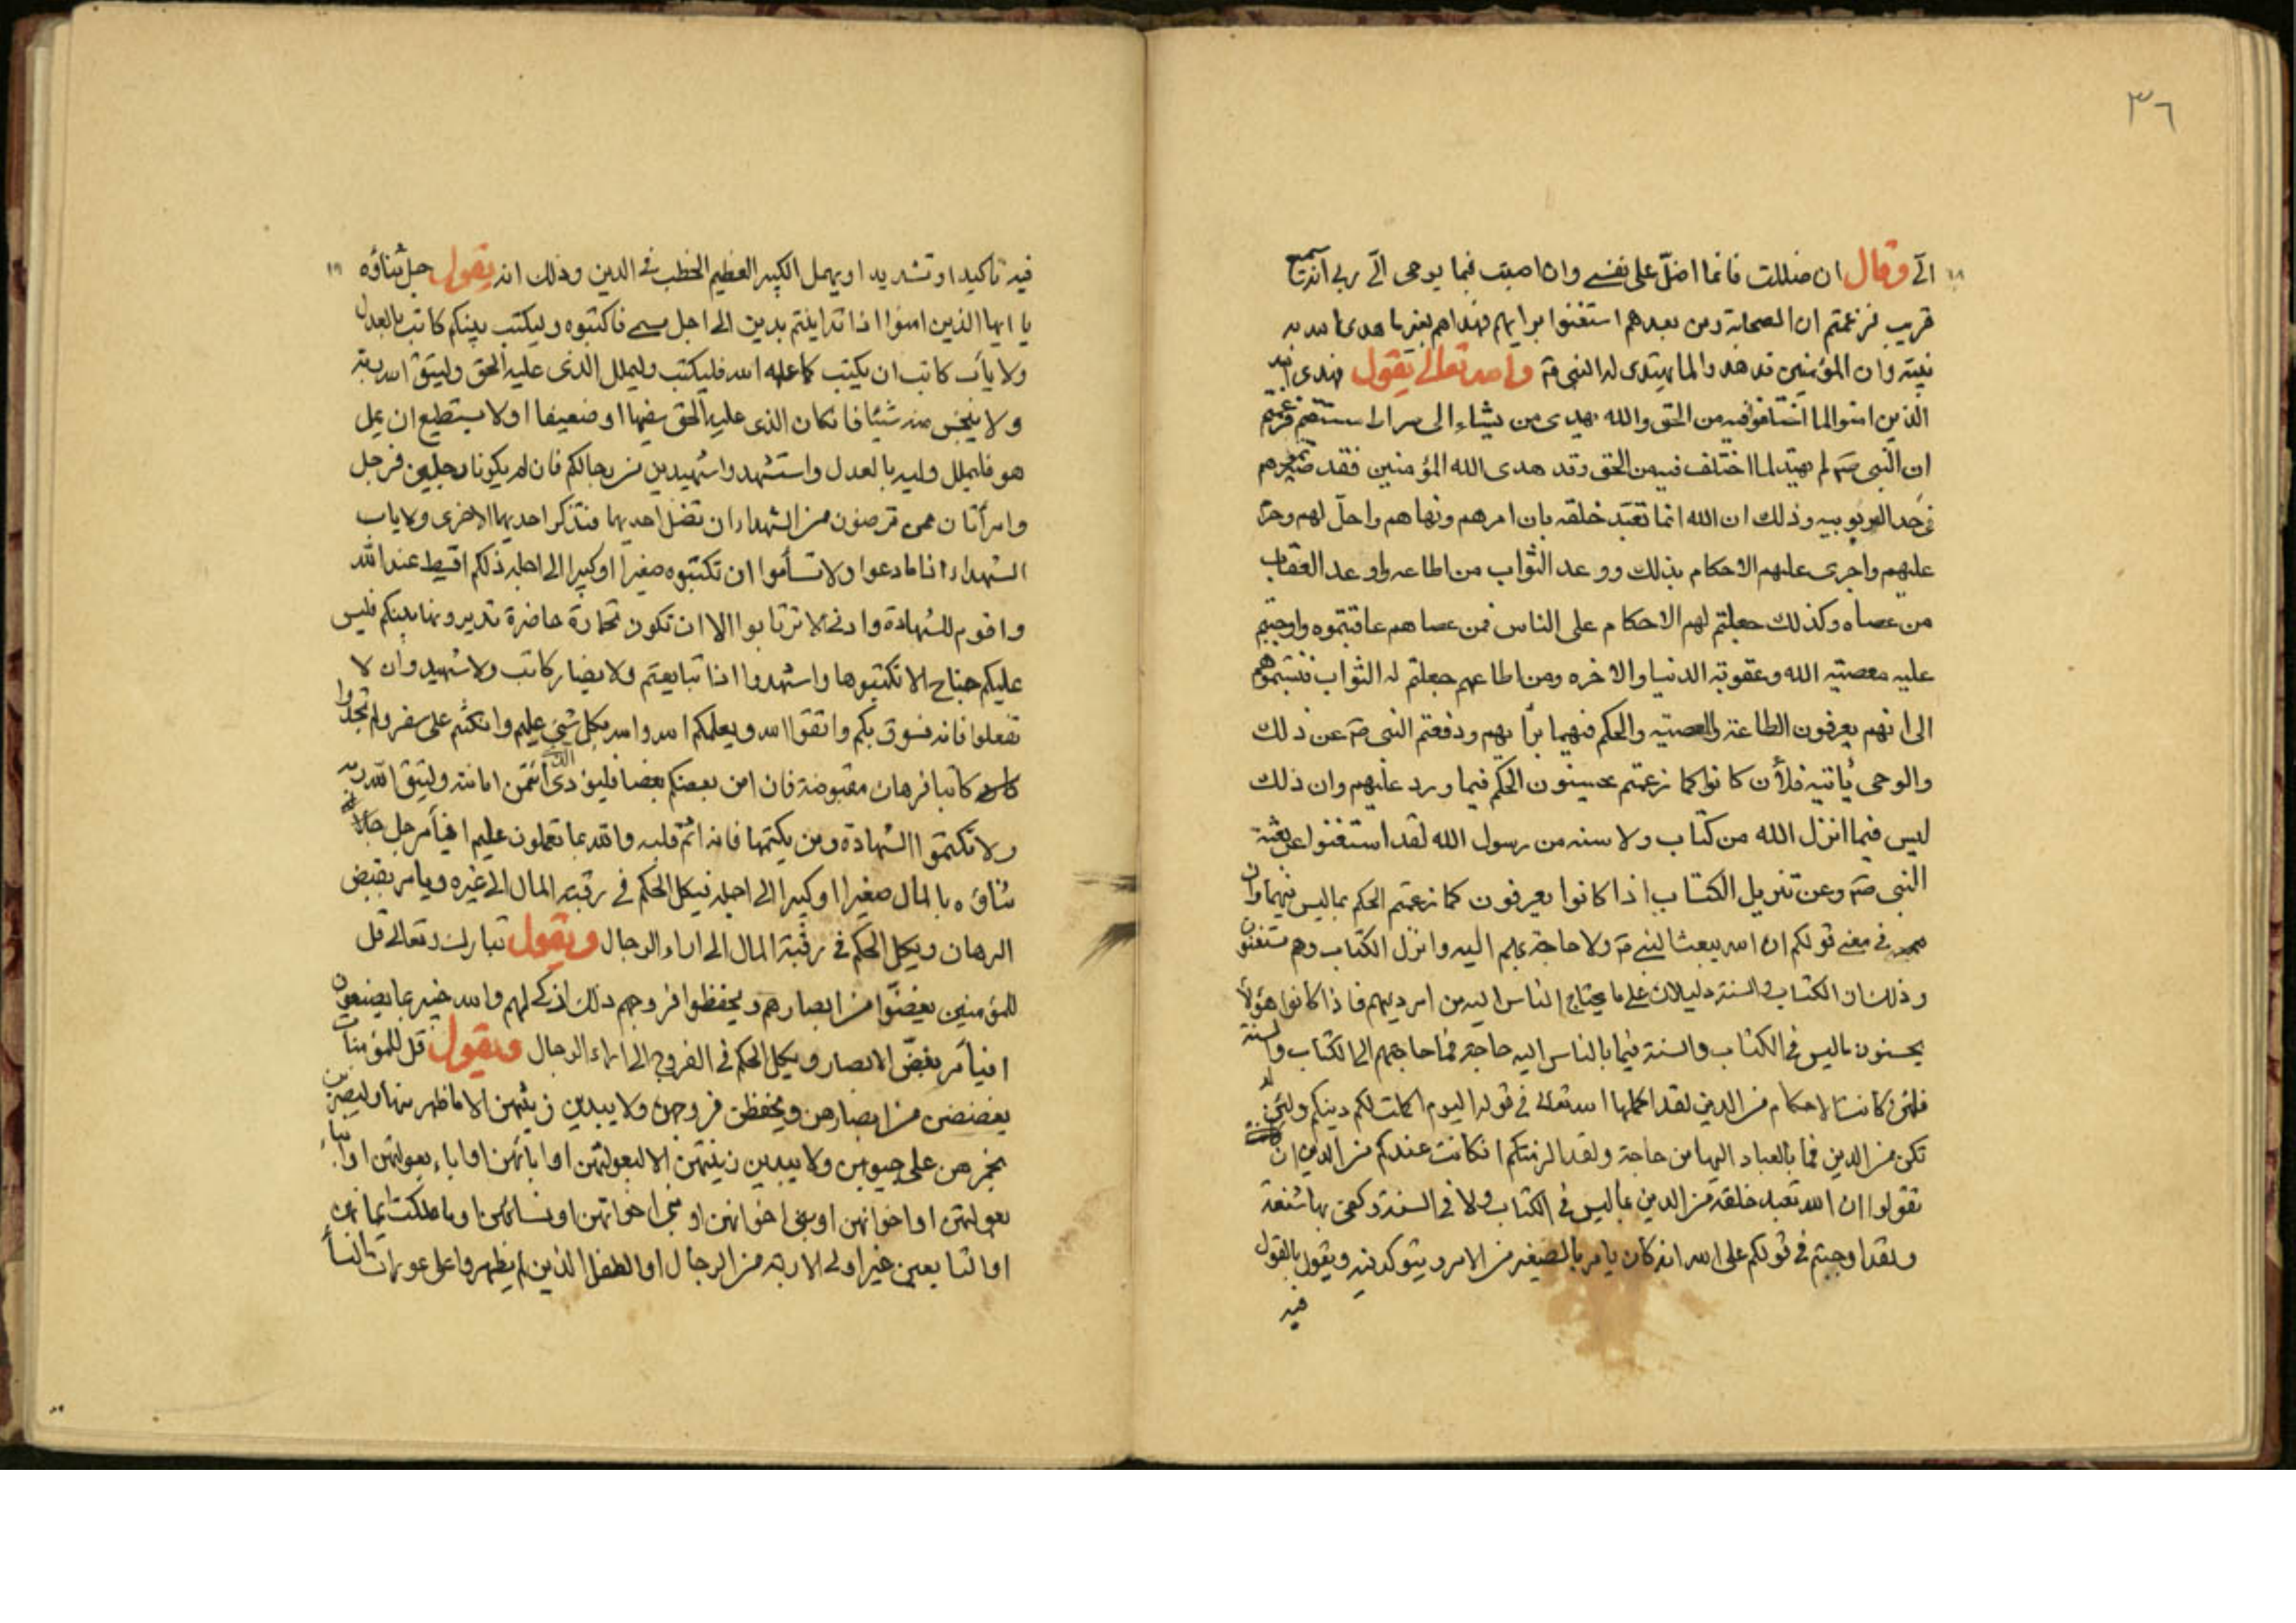 ٣٦
١٨
الّى وقال ان ضللت فانما اضلّ على نفسى وان اهتديت فبما يوحى الّى ربى انه سميع
قريب فزعمتم ان الصحابة ومن بعدهم استغنوا برايهم فهداهم بغير ما هدى الله به
نبيّه وان المؤمنين قد هدوا لما لم يهتدى له النبى صَ والله تعالى يقول فهدى الله
الذين امنوا لما اختلفوا فيه من الحق والله يهدى من يشاء الى صراط مستقيم فزعمتم
ان النبى صَ لم يهتد لما اختلف فيه من الحق وقد هدى الله المؤمنين فقد صيرتموهم
فى حد الربوبيه وذلك ان الله انما تعبّد خلقه بان امرهم ونهاهم واحلّ لهم وحرّم
عليهم واجرى عليهم الاحكام بذلك ووعد الثواب من اطاعه واوعد العقاب
من عصاه وكذلك جعلتم لهم الاحكام على الناس فمن عصاهم عاقبتموه واوجبتم
عليه معصيته الله وعقوبة الدنيا والاخره ومن اطاعهم جعلتم له الثواب فنسبتموهم
الى انهم يعرفون الطاعة والمعصيه والحكم فيهما برأيهم ودفعتم النبى صَ عن ذلك
والوحى يأتيه فلأن كانوا كما زعمتم يحسنون الحكم فيما ورد عليهم وان ذلك
ليس فيما انزل الله من كتاب ولا سنه من رسول الله لقد استغنوا عن بعثة
النبى صَ وعن تنزيل الكتاب اذا كانوا يعرفون كما زعمتم الحكم بما ليس فيهما وان
فى معنى قولكم ان الله يبعث النبى صَ ولا حاجة بهم اليه وانزل الكتاب وهم مستغنون
وذلك ان الكتاب والسنة دليلان على ما يحتاج الناس اليه من امر دينهم فاذا كانوا هؤلاء
يحسنون ما ليس فى الكتاب والسنة فيما بالناس اليه حاجة فما حاجتهم الى الكتاب والسنة
فلئن كانت الاحكام من الدين لقد اكملها الله تعالى فى قوله اليوم اكملت لكم دينكم ولئن لم
تكن من الدين فما بالعباد اليها من حاجة ولقد الزمتكم ان كانت عندكم من الدين ان
تقولوا ان الله تعبد خلقه من الدين بما ليس فى الكتاب ولا فى السنة وكفى بها شنعة
ولقد اوجبتم فى قولكم على الله انه كان يامر بالصغير من الامر ويتوكد فيه ويقول بالقول
فيه
١٩
فيه تاكيدا وتشديدا ويهمل الكبير العظيم الخطب فى الدين وذلك انه يقول جل ثناؤه
يا ايها الذين امنوا اذا تداينتم بدين الى اجل مسمى فاكتبوه وليكتب بينكم كاتب بالعدل
ولا يأب كاتب ان يكتب كما علمه الله فليكتب وليملل الذى عليه الحق وليتق الله ربه
ولا يبخس منه شيئا فان كان الذى عليه الحق سفيها او ضعيفا او لا يستطيع ان يمل
هو فليملل وليه بالعدل واستشهدوا شهيدين من رجالكم فان لم يكونا رجلين فرجل
وامرأتان ممن ترضون من الشهداء ان تضل احديهما فتذكر احديهما الاخرى ولا ياب
الشهداء اذا ما دعوا ولا تسأموا ان تكتبوه صغيرا او كبيرا الى اجله ذلكم اقسط عند الله
واقوم للشهادة وادنى الا ترتابوا الا ان تكون تجارة حاضرة تديرونها بينكم فليس
عليكم جناح الا تكتبوها واشهدوا اذا تبايعتم ولا يضار كاتب ولا شهيد وان لا
تفعلوا فانه فسوق بكم واتقوا الله ويعلمكم الله والله بكل شىء عليم وان كنتم على سفر ولم تجدوا
كاتبا فرهان مقبوضة فان امن بعضكم بعضا فليؤدى الذى ائتمن امانته وليتق الله ربه
ولا تكتموا الشهادة ومن يكتمها فانه اثم قلبه والله بما تعملون عليم افيأمر جل جلاله
ثناؤه بالمال صغيرا او كبيرا الى اجله فيكل الحكم فى رقبة المال الى غيره ويامر بقبض
الرهان ويكل الحكم فى رقبة المال الى اراء الرجال ويقول تبارك وتعالى قل
للمؤمنين يغضّوا من ابصارهم ويحفظوا فروجهم ذلك ازكى لهم والله خبير بما يصنعون
افيأمر بغضّ الابصار ويكل الحكم فى الفروج الى اراء الرجال ويقول قل للمؤمنات
يغضضن من ابصارهن ويحفظن فروجهن ولا يبدين زينتهن الا ما ظهر منها وليضربن
بخمرهن على جيوبهن ولا يبدين زينتهن الا لبعولتهن او ابائهن او اباء بعولتهن او ابناء
بعولتهن او اخوانهن او بنى اخوانهن او بنى اخواتهن او نسائهن او ما ملكت ايمانهن
او التابعين غير اولى الاربة من الرجال او الطفل الذين لم يظهروا على عورات النساء